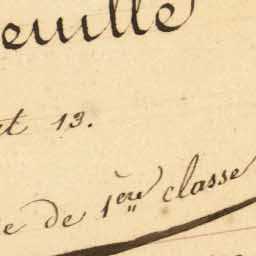 euille
et 13.
e de 1ère classe